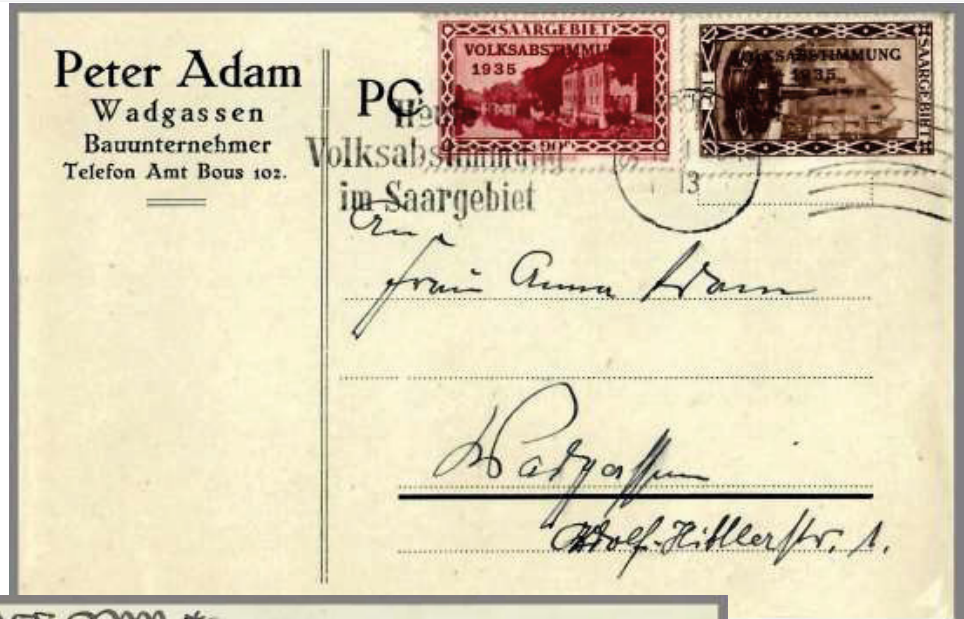 Peter Adam
Wadgassen
Bauunternehmer
Telefon Amt Bous 102.
SAARGEBIET
VOLKSABSTIMMUNG
1935
90
VOLKSABSTIMMUNG
1935
SAARGEBIET
Volksabstimmung
im Saargebiet
13
An
Frau Anna Adam
Wadgassen
Adolf-Hitlerstr. 1.